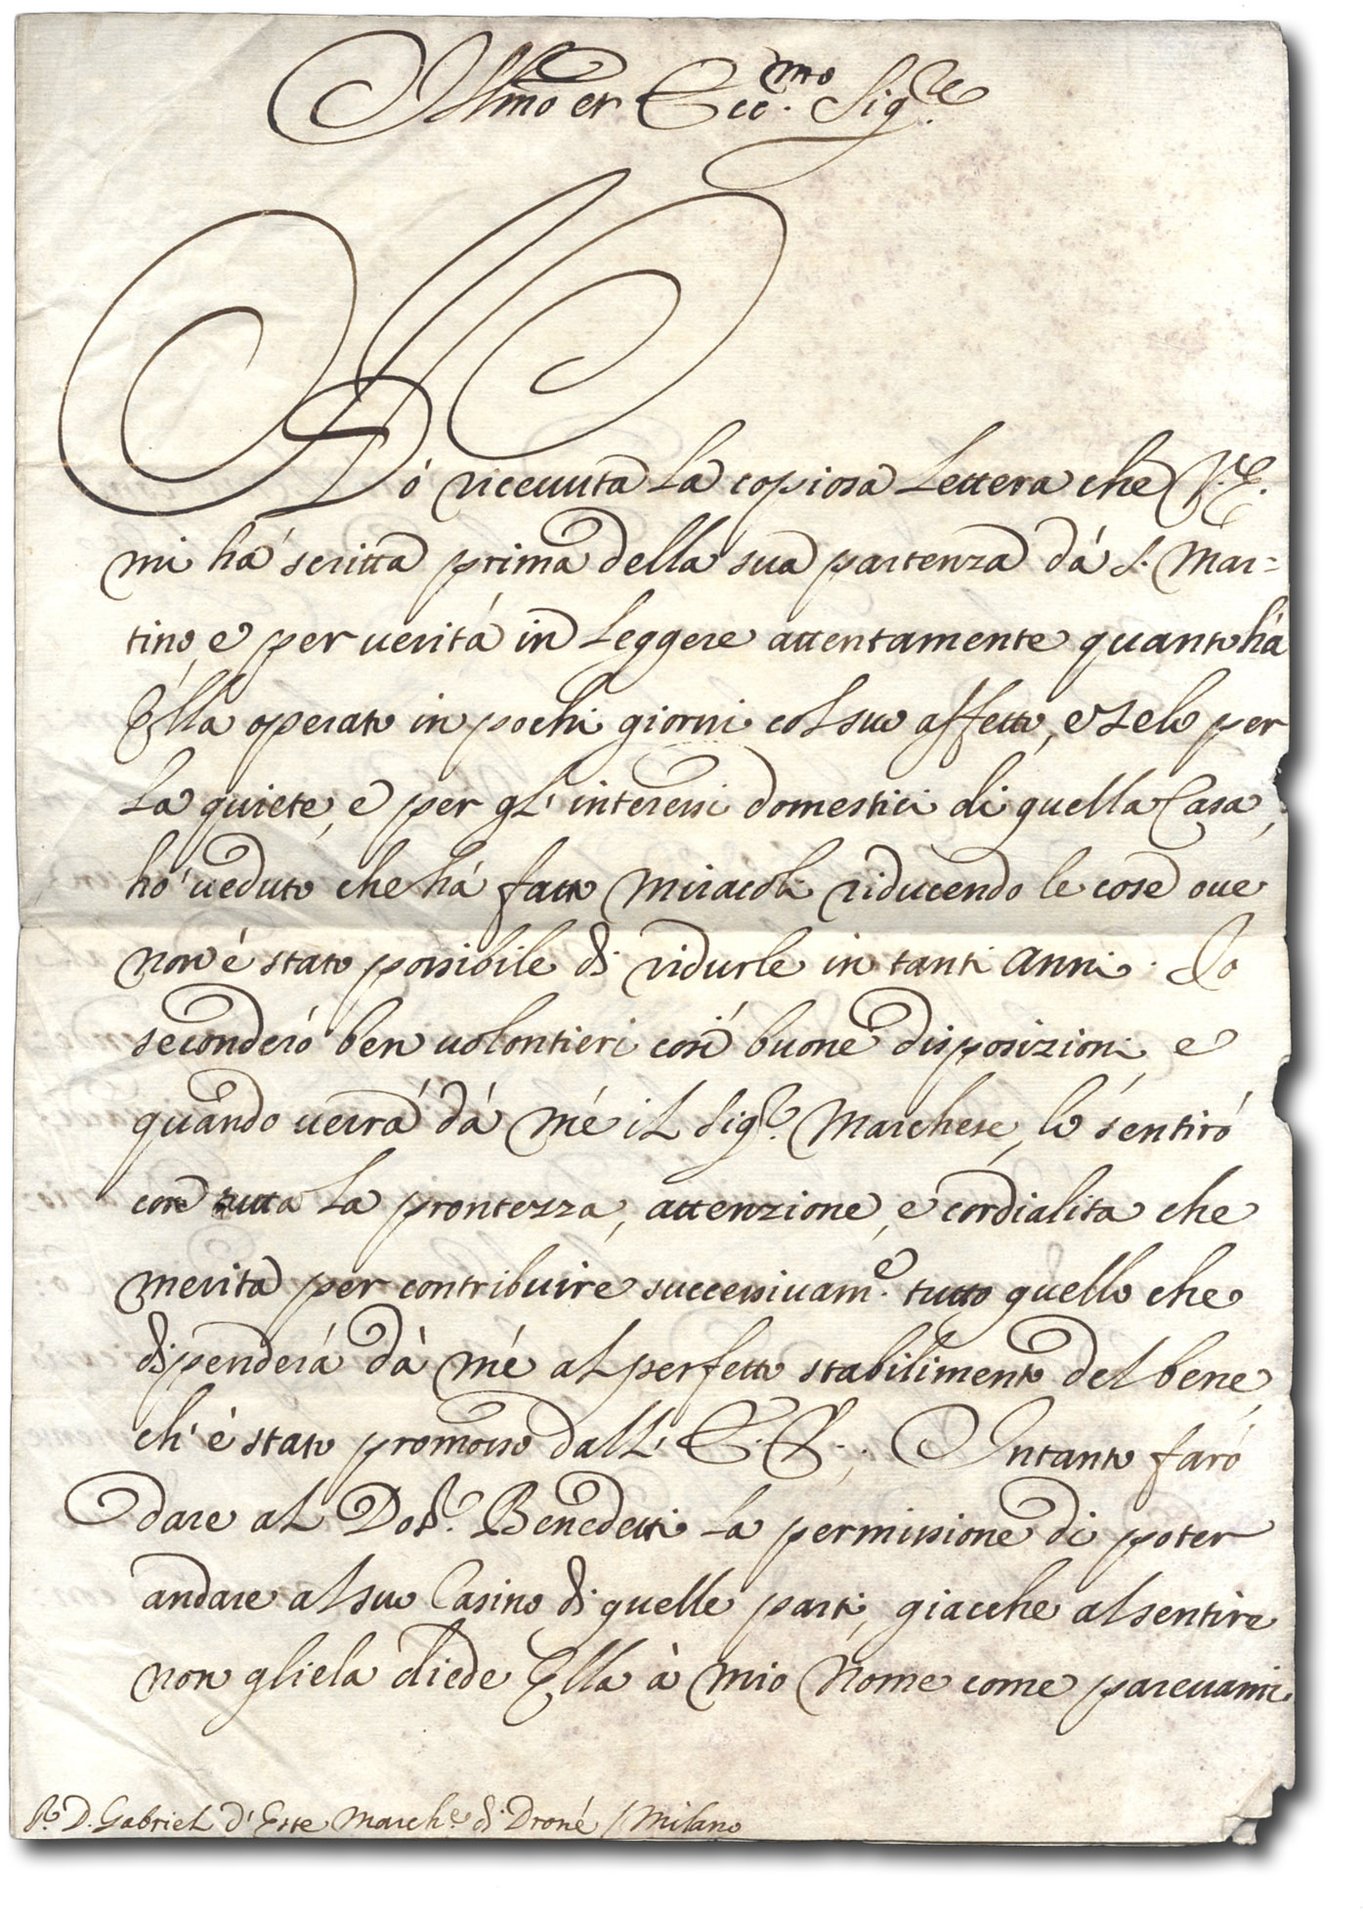 Illmo et Ecc.mo Sig.re
Hó riceuuta la copiosa Lettera che V.E.
mi há scritta prima della sua partenza dá S. Mar=
tino, e per ueritá in Leggere attentamente quanto há
Ella operato in pochi giorni col suo affetto, e zelo per
la quiete, e per gl' interessi domestici di quella Casa,
hó ueduto che há fatto miracoli riducendo le cose oue
non é stato possibile di ridurle in tanti anni. Io
seconderó ben uolontieri così buone disposizioni, e
quando uerrá dá mé il Sig.r Marchese, lo sentiró
con tutta la prontezza, attenzione, e cordialita che
merita per contribuire successiuam.e tutto quello che
dipenderá dà mé al perfetto stabilimento del bene,
ch' è stato promosso dall' E.V.; Intanto faró
dare al Dott.r Benedetti la permissione di poter
andare al suo Casino di quelle parti, giacche al sentire
non gliela diede Ella à mio nome come pareuami
S.r D. Gabriel d' Este March.e di Droné / Milano